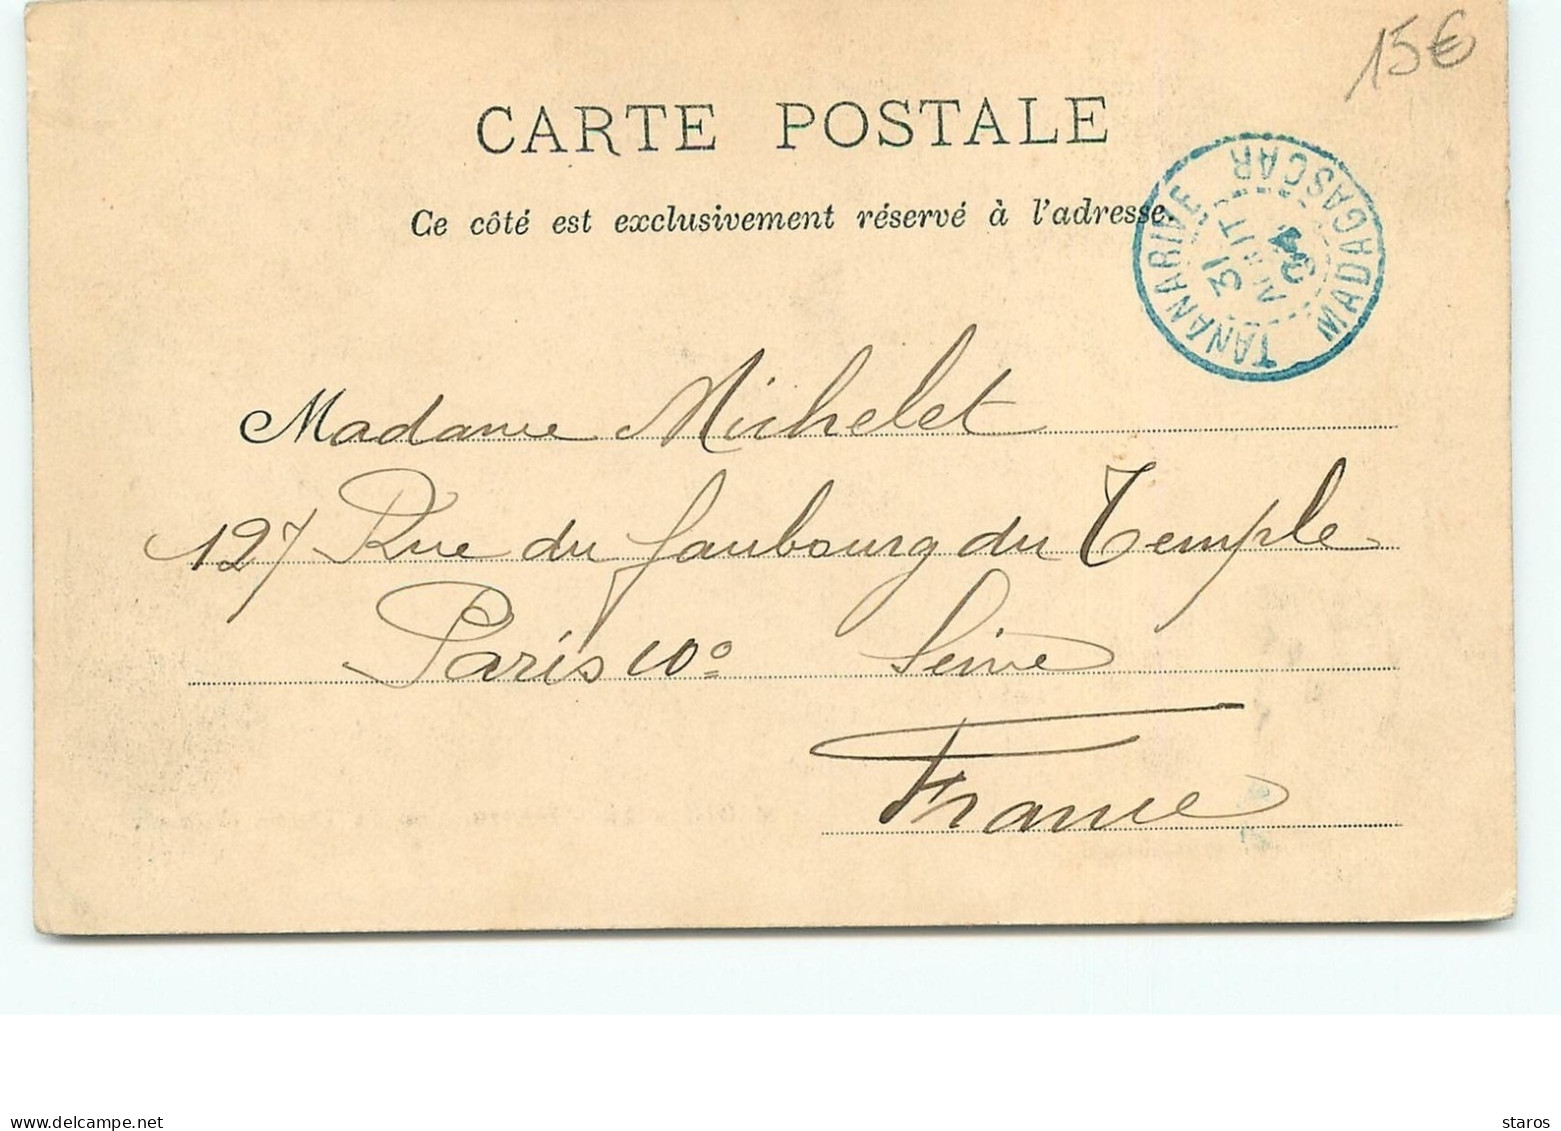 15€
CARTE POSTALE
Ce côté est exclusivement réservé à l'adresse.
TANANARIVE
31
AOUT
04
MADAGASCAR
Madame Michelet
127 Rue du faubourg du Temple
Paris 10º Seine
France
www.delcampe.net
staros